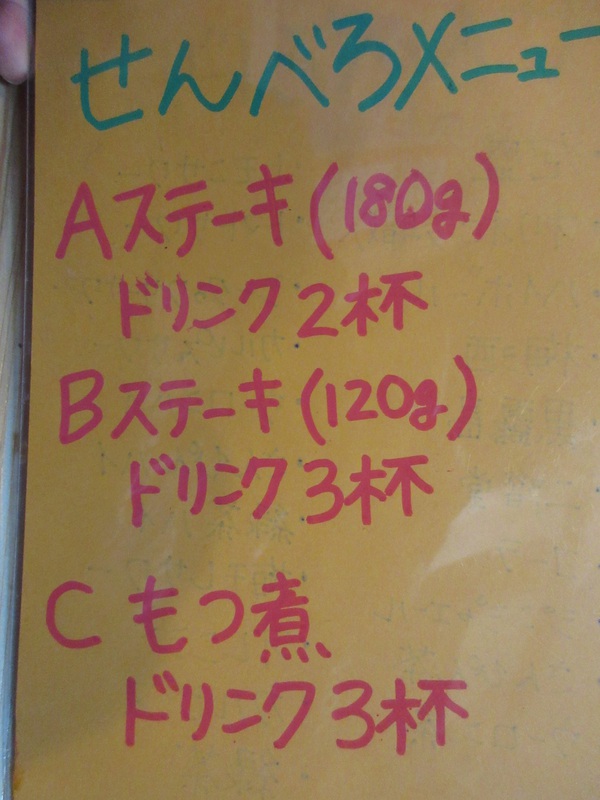 せんべろメニュー
Aステーキ(180g)
ドリンク2杯
Bステーキ(120g)
ドリンク3杯
C もつ煮
ドリンク3杯